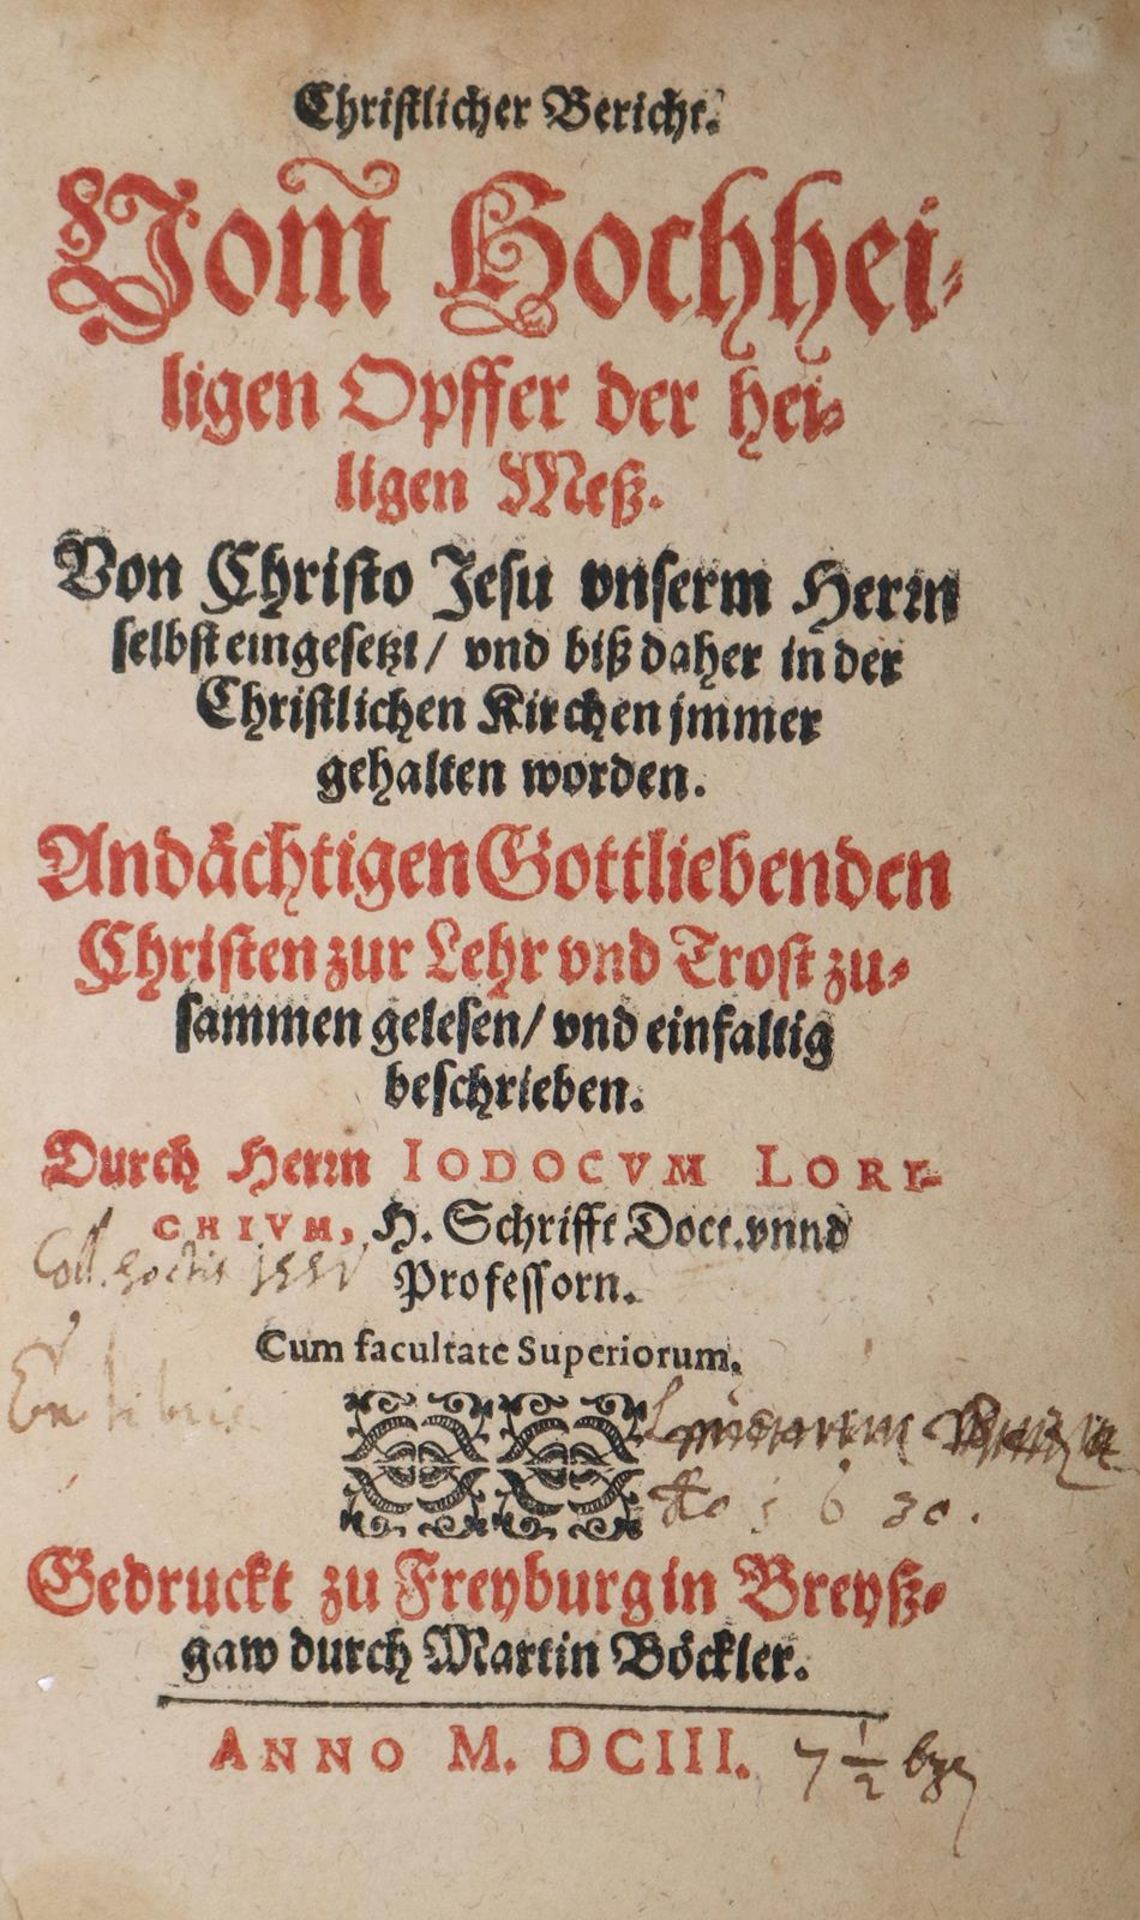 Christlicher Bericht.
Vom̃ Hochhei-
ligen Opffer der hei-
ligen Meß.
Von Christo Jesu vnserm Herrn
selbst eingesetzt / vnd biß daher in der
Christlichen Kirchen jmmer
gehalten worden.
Andächtigen Gottliebenden
Christen zur Lehr vnd Trost zu-
sammen gelesen / vnd einfaltig
beschrieben.
Durch Herrn IODOCVM LORI-
CHIVM, H. Schrifft Doct. vnnd
Professorn.
Cum facultate Superiorum.
Ex libris
Ao 1630.
Gedruckt zu Freyburg in Breyß-
gaw durch Martin Böckler.
ANNO M. DCIII. 7 1/2